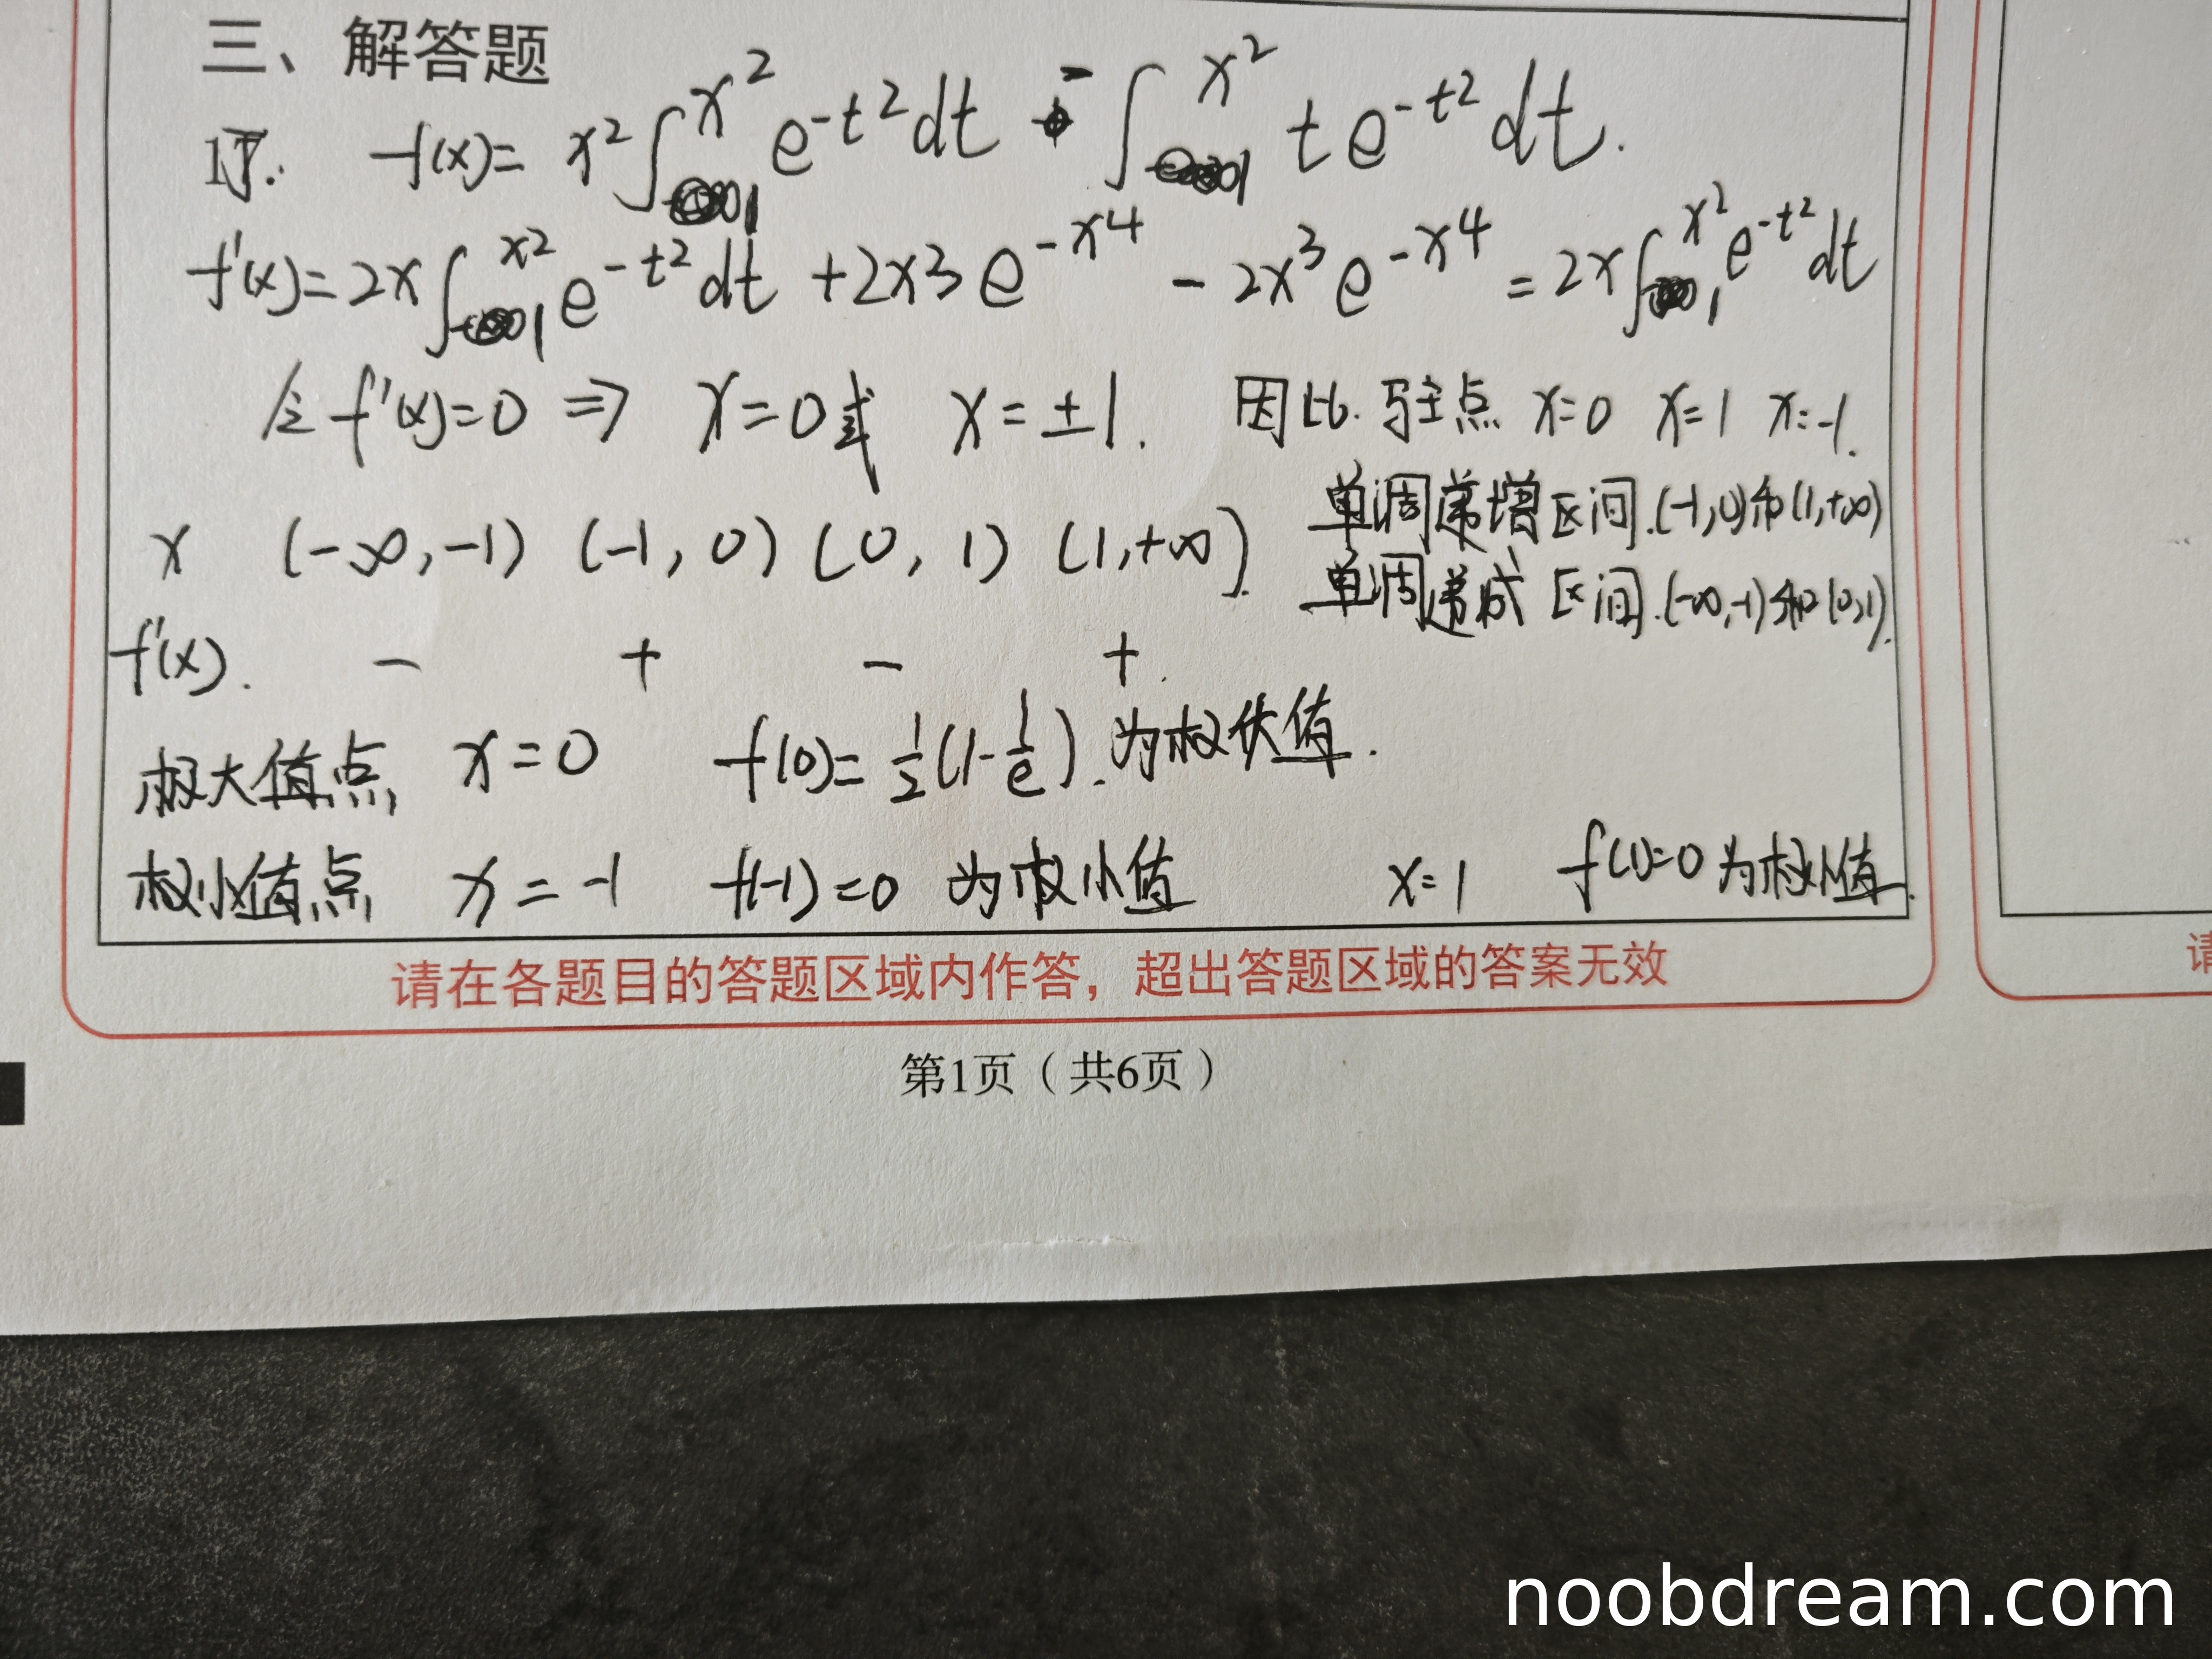 三、解答题
17. f(x)= x²∫₁^x² e^-t² dt - ∫₁^x² te^-t² dt.
f'(x)=2x∫₁^x² e^-t² dt +2x³e^-x⁴ - 2x³e^-x⁴ = 2x∫₁^x² e^-t² dt
令f'(x)=0 ⇒ x=0或 x=±1. 因此.驻点 x=0 x=1 x=-1.
x (-∞,-1) (-1,0) (0,1) (1,+∞).
单调递增区间.(-1,0)和(1,+∞)
单调递减区间.(-∞,-1)和(0,1).
f'(x). - + - +.
极大值点 x=0 f(0)= 1/2(1-1/e).为极大值.
极小值点 x=-1 f(-1)=0 为极小值 x=1 f(1)=0为极小值.
请在各题目的答题区域内作答，超出答题区域的答案无效
请
第1页（共6页）
noobdream.com